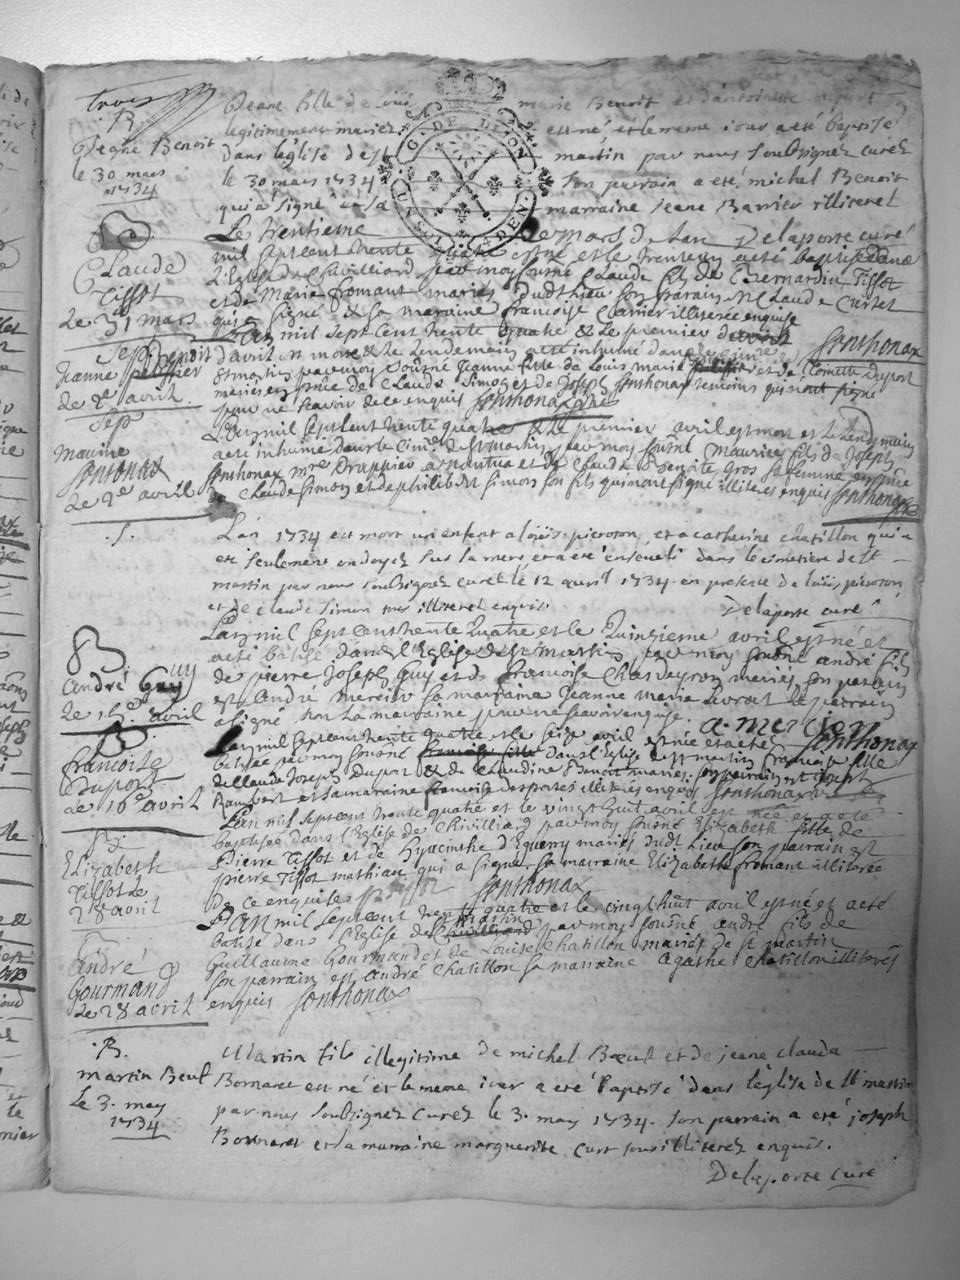 trois
B
Jeane Benoit
le 30 mars
1734
Jeane fille de marie Benoit et d'antoinette
legitimement mariez est né et le meme iour a eté baptisé
dans l'eglise de st martin par nous soubsignez curez
le 30 mars 1734 son parrain a eté michel Benoit
qui a signé et sa marraine Jeane Barrier illiteree
G. DE LION
Delaporte curé
Claude
Tissot
Le 31 mars
Le trentieme de mars de l'an
mil sept cent trente quatre est né et le trente un a eté baptisé dans
l'Eglise de Chivilliard par moy sousné Claude fils de Bernardin Tissot
et de Marie fromant mariés dudt lieu son parain Claude Curtet
qui a signé & sa maraine francoise Carrier illiterée enquise
Sonthonax
Sep
Benoit
Jeanne
Le 2e avril
L'an mil sept cent trente quatre & le premier
d'avril est morte & le lendemain a eté inhumé dans le cimre
St martin par moy sousné Jeanne fille de Louis marie et de Toinette Duport
mariés en pnce de Claude Simon et de Joseph Sonthonax temoins qui n'ont signé
pour ne scavoir de ce enquis Sonthonax
Sep
Maurice
Sonthonax
Le 2e avril
L'an mil sept cent trente quatre & le premier avril est mort et le lendemain
a eté inhumé dans le cime de St martin par moy sousné Maurice fils de Joseph
Sonthonax mre Drappier a nantua et de Claudа Benoite Gros sa femme en pnce
de Claude Simon et de philibert Simon son fils qui n'ont signé illiterés enquis Sonthonax
.S.
L'an 1734 est mort un enfant a loüis pieroson, et a catherine chatillon qui a
eté seulement ondoyez sur la mere, et a eté enseveli dans le cimetiere de St
martin par nous soubsignez curé le 12 avril 1734 en presence de loüis pieroson
et de claude simon tous illiterez enquis
Delaporte curé
B
André Guy
Le 16e avril
L'an mil sept cent trente quatre et le Quinzieme avril est né et
a eté batisé dans l'Eglise de St martin par moy sousné andré fils
de pierre Joseph Guy et de francoise Chardeyron mariés son parrain
est andré mercier sa maraine Jeanne marie le parrain
a signé non la maraine pour ne scavoir enquise. a. mercier
Sonthonax
B
francoise
Duport
Le 16e avril
L'an mil sept cent trente quatre et le seize avril est née et a eté
batisée par moy sousné dans l'eglise de St martin francoise fille
de Claude Joseph Duport & de Claudine Benoit mariés son parrain est Joseph
Rambert et sa maraine francoise desportes illiterés enquis Sonthonax
B
Elizabeth
Tissot le
28 avril
L'an mil sept cent trente quatre et le vingt huit avril est née et a eté
baptisée dans l'Eglise de Chivilliard par moy sousné Elizabeth fille de
Pierre Tissot et de Hyacinthe d'Equerry mariés dudt Lieu son parrain est
pierre Tissot mathieu qui a signé sa maraine Elizabeth fromant illiterée
de ce enquise Sonthonax
andré
Gourmand
Le 28 avril
L'an mil sept cent trente quatre et le vingt huit avril est né et a eté
batisé dans l'Eglise de St martin par moy sousné andré fils de
Guillaume Gourmand et de Louise Chatillon mariés de St martin
son parrain est andré Chatillon sa marraine agathe Chatillon illiterés
enquis Sonthonax
.B.
martin Beuf
Le 3. may
1734
Martin fils illegitime de michel Bœuf et de jeane claudа
Bornaret est né et le meme iour a eté baptisé dans l'eglise de St martin
par nous soubsignez curez le 3. may 1734. son parrain a eté joseph
Bornaret et sa marraine marguerite curt tous illiterez enquis.
Delaporte curé